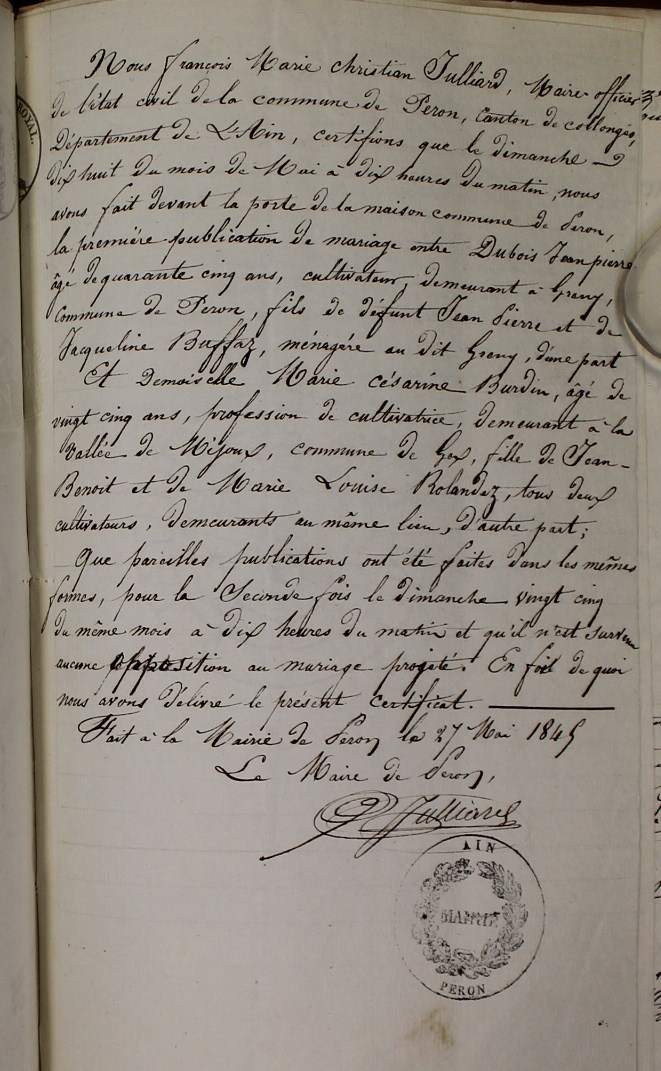 Nous françois Marie christian Julliard, Maire officier
de l'état civil de la commune de Peron, Canton de collonges,
Département de L'Ain, certifions que le dimanche
dix huit du mois de Mai à dix heures du matin, nous
avons fait devant la porte de la maison commune de Peron,
la première publication de mariage entre Dubois Jean pierre
âgé de quarante cinq ans, cultivateur, demeurant à Greny,
Commune de Peron, fils de défunt Jean Pierre et de
Jacqueline Buffaz, ménagére au dit Greny, d'une part
Et Demoiselle Marie césarine Burdin, âgé de
vingt cinq ans, profession de cultivatrice, demeurant à la
Vallée de Mijoux, commune de Gex, fille de Jean-
Benoit et de Marie Louise Rolandez, tous deux
cultivateurs, demeurants au même lieu, d'autre part;
Que pareilles publications ont été faites dans les mêmes
formes, pour la Seconde fois le dimanche vingt cinq
du même mois à dix heures du matin et qu'il n'est survenu
aucune opposition au mariage projeté. En foi de quoi
nous avons délivré le présent certificat.
Fait à la Mairie de Peron le 27 Mai 1845
Le Maire de Peron,
Julliard
AIN
MAIRIE
PERON
ROYAL.